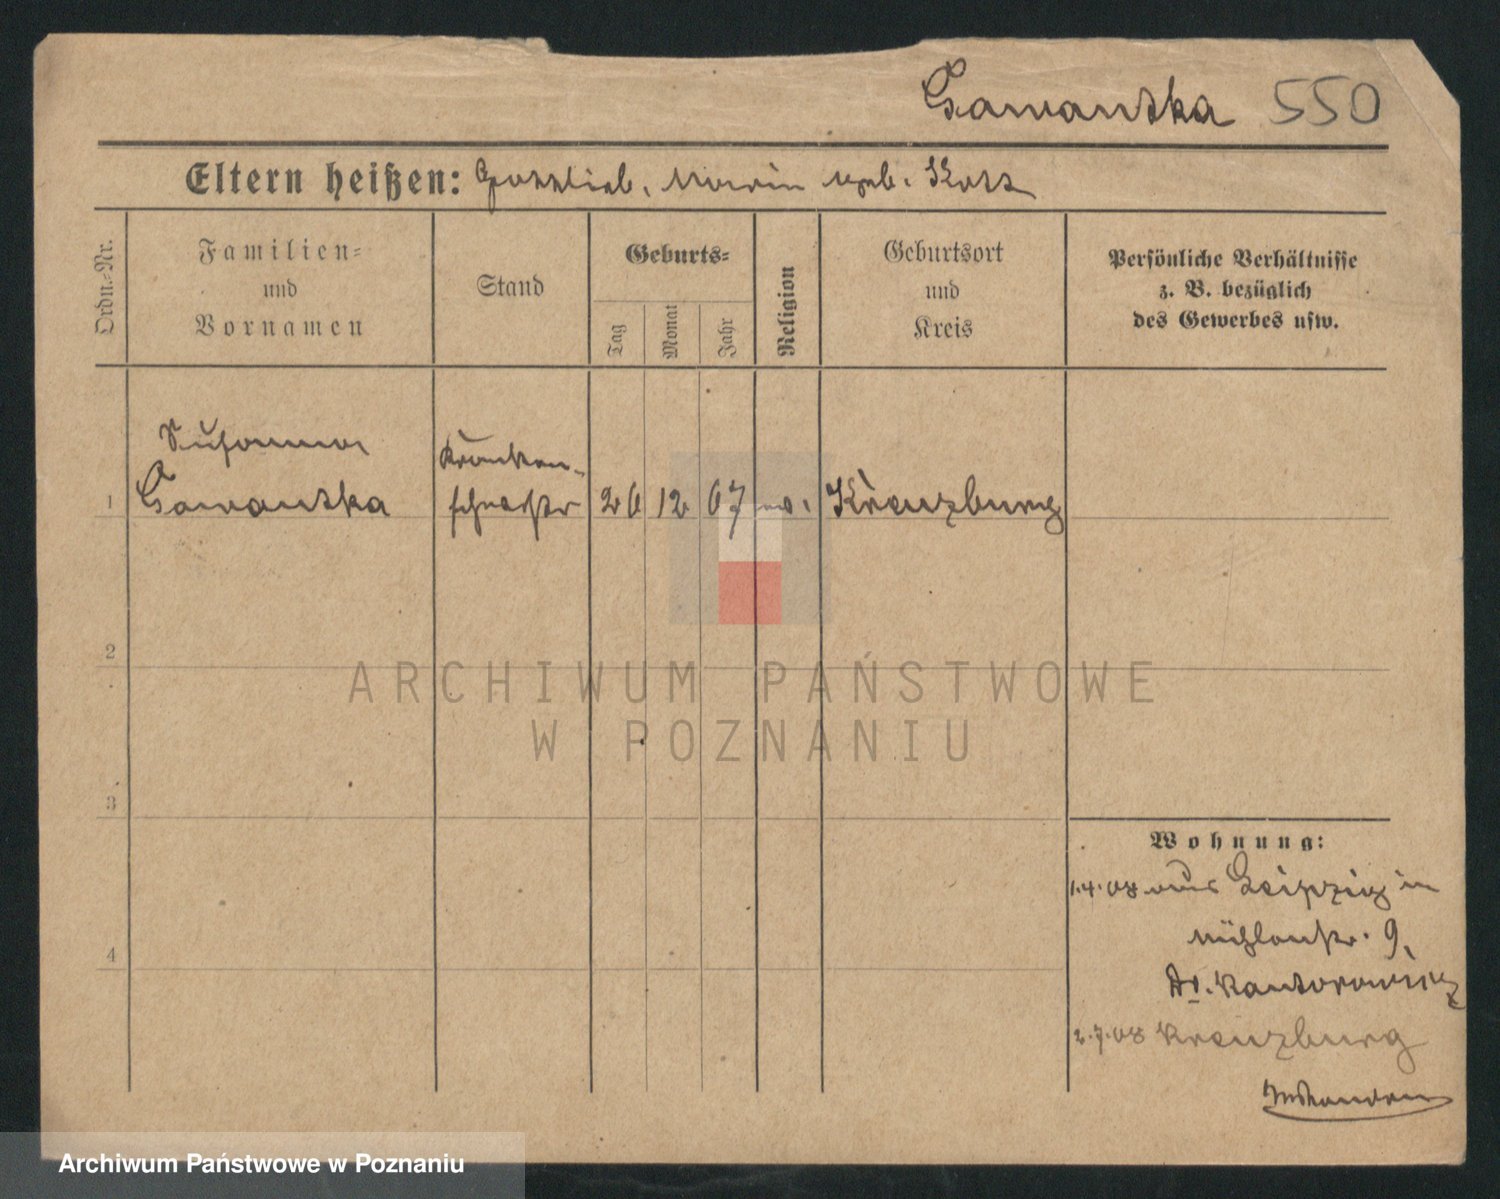 Gawantka 550
Eltern heißen: Gottlieb, Marie geb. Kotz
Ordn.-Nr.
Familien-
und
Vornamen
Stand
Geburts-
Tag
Monat
Jahr
Religion
Geburtsort
und
Kreis
Persönliche Verhältnisse
z. B. bezüglich
des Gewerbes usw.
Susanna
Gawantka
Kranken-
schwester
1
26 12 67
Kreuzburg
2
3
4
Wohnung:
1.4.08 aus Leipzig in
Mühlenstr. 9,
Dr. Kantorowicz
2.7.08 Kreuzburg
ARCHIWUM PAŃSTWOWE
W POZNANIU
Archiwum Państwowe w Poznaniu